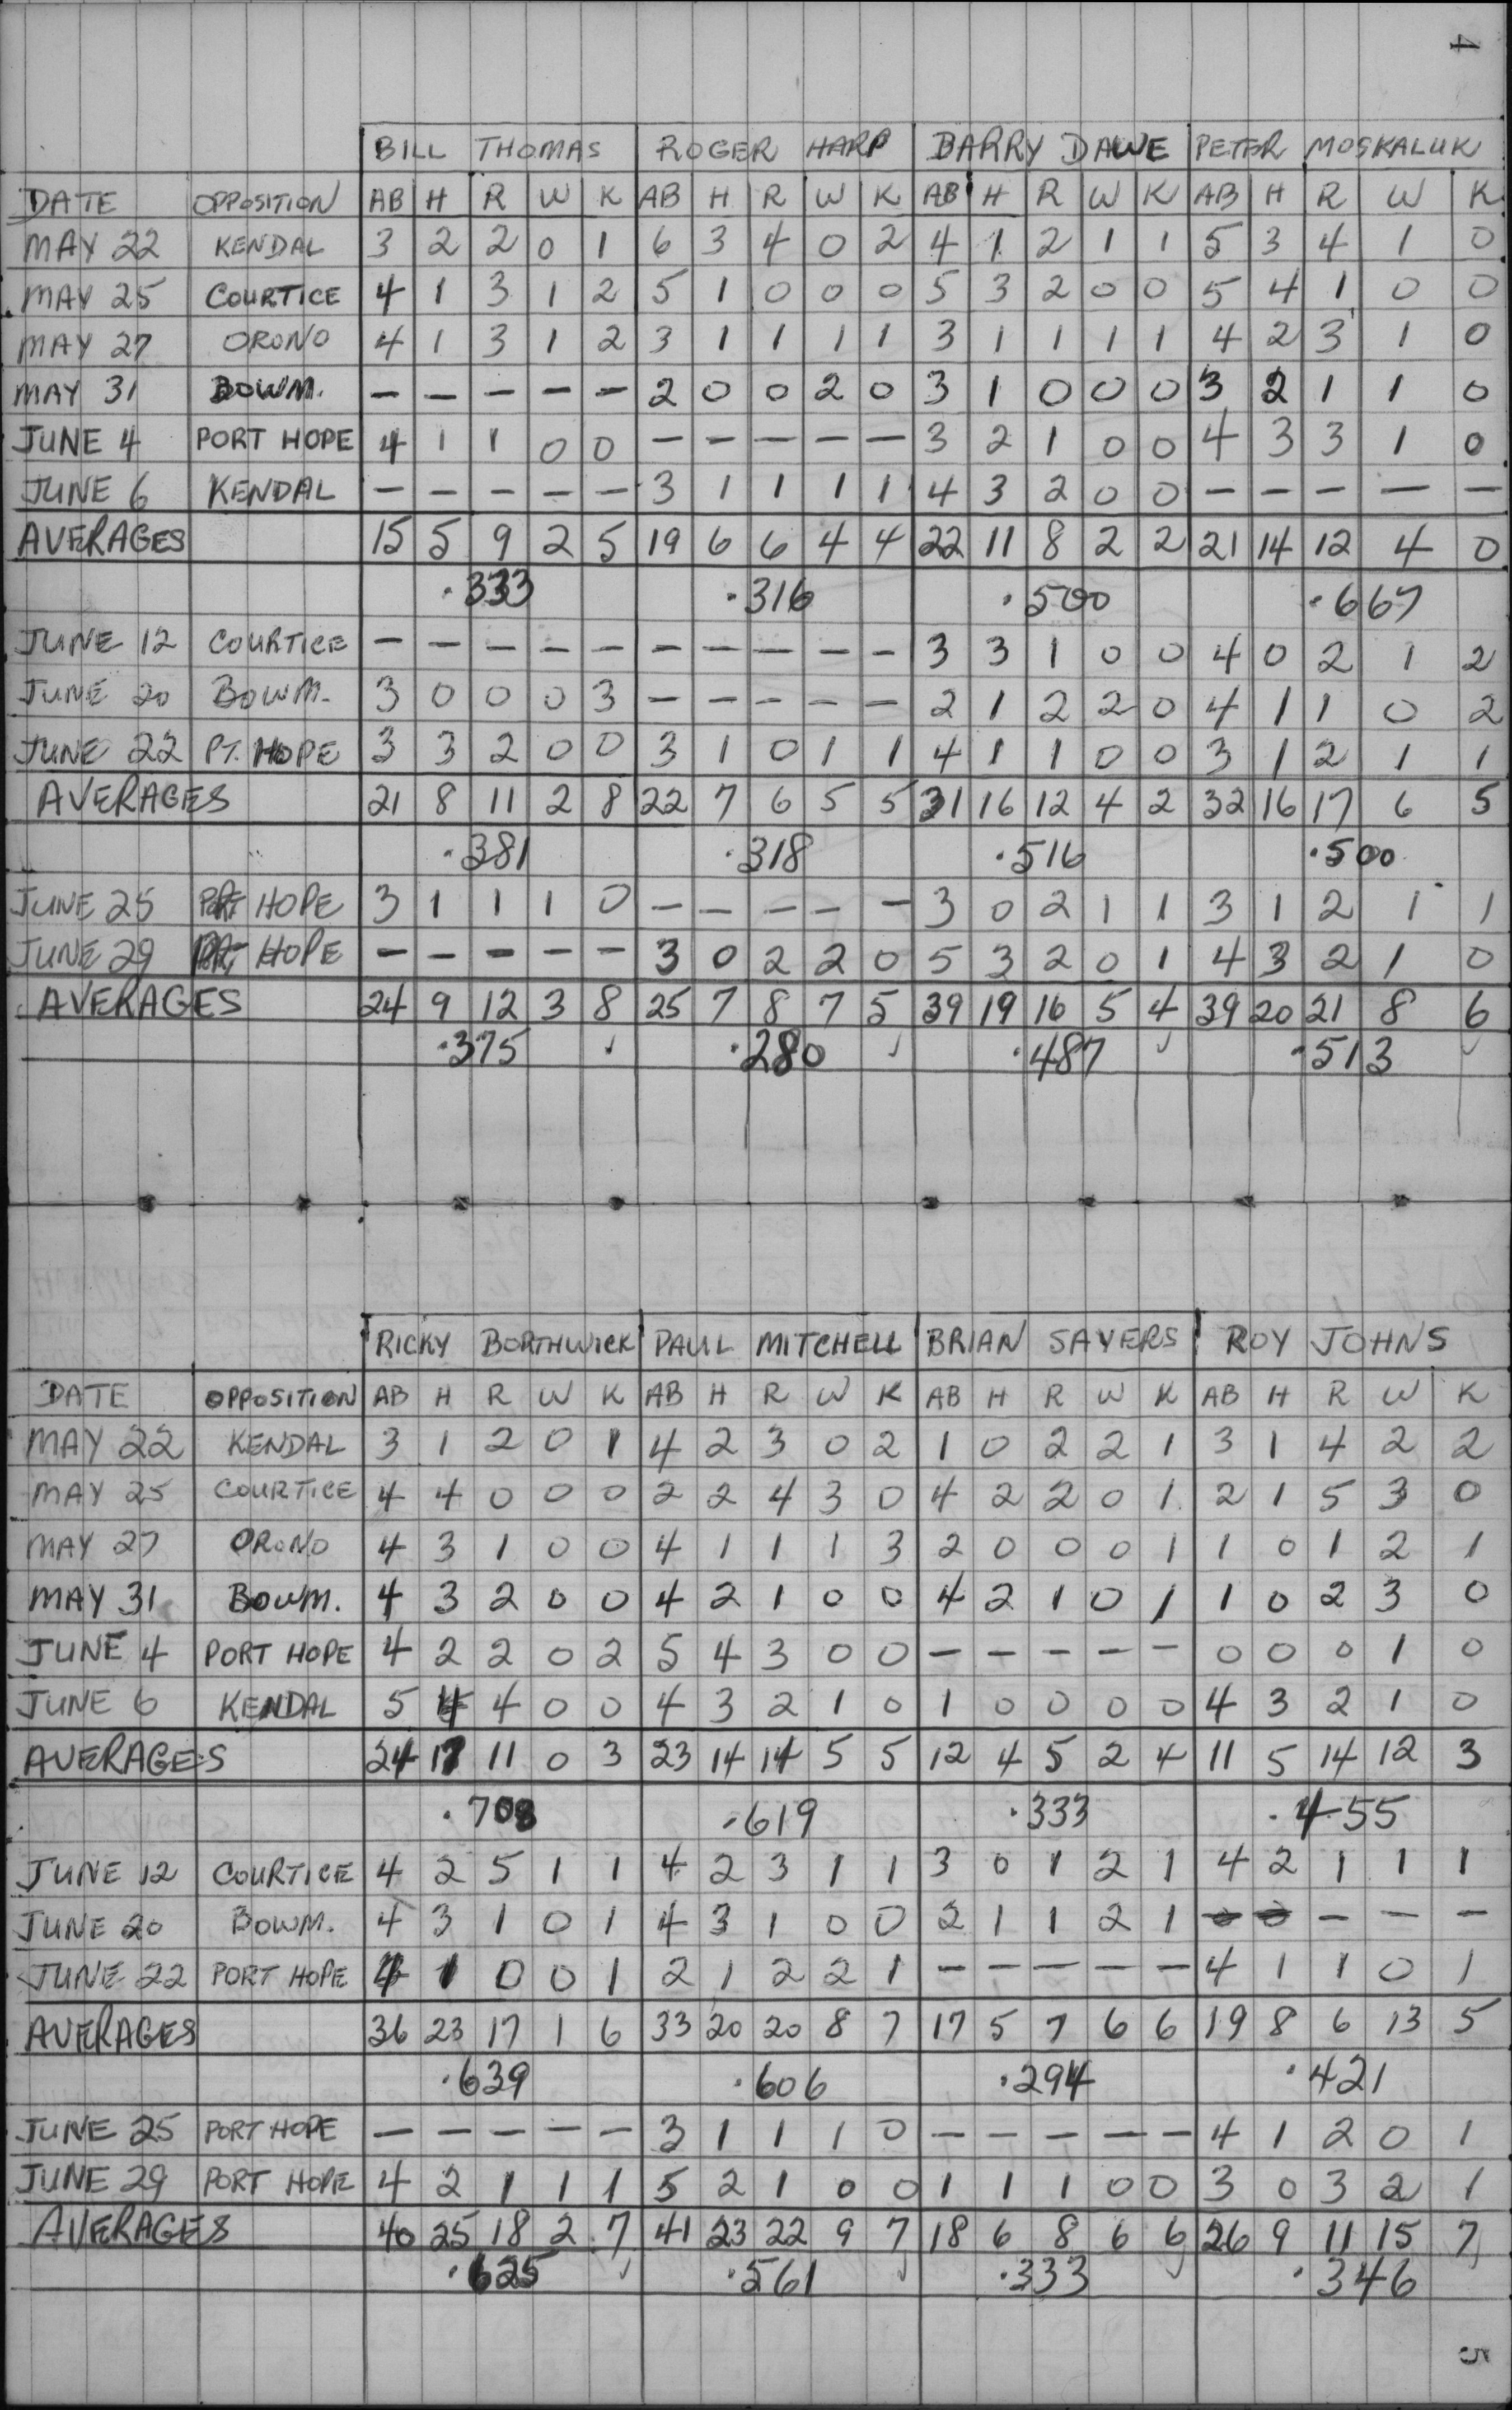 4
BILL THOMAS ROGER HARP BARRY DAWE PETER MOSKALUK
DATE OPPOSITION AB H R W K AB H R W K AB H R W K AB H R W K
MAY 22 KENDAL 3 2 2 0 1 6 3 4 0 2 4 1 2 1 1 5 3 4 1 0
MAY 25 COURTICE 4 1 3 1 2 5 1 0 0 0 5 3 2 0 0 5 4 1 0 0
MAY 27 ORONO 4 1 3 1 2 3 1 1 1 1 3 1 1 1 1 4 2 3 1 0
MAY 31 BOWM. - - - - - 2 0 0 2 0 3 1 0 0 0 3 2 1 1 0
JUNE 4 PORT HOPE 4 1 1 0 0 - - - - - 3 2 1 0 0 4 3 3 1 0
JUNE 6 KENDAL - - - - - 3 1 1 1 1 4 3 2 0 0 - - - - -
AVERAGES 15 5 9 2 5 19 6 6 4 4 22 11 8 2 2 21 14 12 4 0
.333 .316 .500 .667
JUNE 12 COURTICE - - - - - - - - - - 3 3 1 0 0 4 0 2 1 2
JUNE 20 BOWM. 3 0 0 0 3 - - - - - 2 1 2 2 0 4 1 1 0 2
JUNE 22 PT. HOPE 3 3 2 0 0 3 1 0 1 1 4 1 1 0 0 3 1 2 1 1
AVERAGES 21 8 11 2 8 22 7 6 5 5 31 16 12 4 2 32 16 17 6 5
.381 .318 .516 .500
JUNE 25 PORT HOPE 3 1 1 1 0 - - - - - 3 0 2 1 1 3 1 2 1 1
JUNE 29 HOPE - - - - - 3 0 2 2 0 5 3 2 0 1 4 3 2 1 0
AVERAGES 24 9 12 3 8 25 7 8 7 5 39 19 16 5 4 39 20 21 8 6
.375 ✓ .280 ✓ .487 ✓ .513 ✓
RICKY BORTHWICK PAUL MITCHELL BRIAN SAYERS ROY JOHNS
DATE OPPOSITION AB H R W K AB H R W K AB H R W K AB H R W K
MAY 22 KENDAL 3 1 2 0 1 4 2 3 0 2 1 0 2 2 1 3 1 4 2 2
MAY 25 COURTICE 4 4 0 0 0 2 2 4 3 0 4 2 2 0 1 2 1 5 3 0
MAY 27 ORONO 4 3 1 0 0 4 1 1 1 3 2 0 0 0 1 1 0 1 2 1
MAY 31 BOWM. 4 3 2 0 0 4 2 1 0 0 4 2 1 0 1 1 0 2 3 0
JUNE 4 PORT HOPE 4 2 2 0 2 5 4 3 0 0 - - - - - 0 0 0 1 0
JUNE 6 KENDAL 5 4 4 0 0 4 3 2 1 0 1 0 0 0 0 4 3 2 1 0
AVERAGES 24 17 11 0 3 23 14 14 5 5 12 4 5 2 4 11 5 14 12 3
.708 .619 .333 .455
JUNE 12 COURTICE 4 2 5 1 1 4 2 3 1 1 3 0 1 2 1 4 2 1 1 1
JUNE 20 BOWM. 4 3 1 0 1 4 3 1 0 0 2 1 1 2 1 - - - - -
JUNE 22 PORT HOPE 4 1 0 0 1 2 1 2 2 1 - - - - - 4 1 1 0 1
AVERAGES 36 23 17 1 6 33 20 20 8 7 17 5 7 6 6 19 8 6 13 5
.639 .606 .294 .421
JUNE 25 PORT HOPE - - - - - 3 1 1 1 0 - - - - - 4 1 2 0 1
JUNE 29 PORT HOPE 4 2 1 1 1 5 2 1 0 0 1 1 1 0 0 3 0 3 2 1
AVERAGES 40 25 18 2 7 41 23 22 9 7 18 6 8 6 6 26 9 11 15 7
.625 ✓ .561 ✓ .333 ✓ .346
5